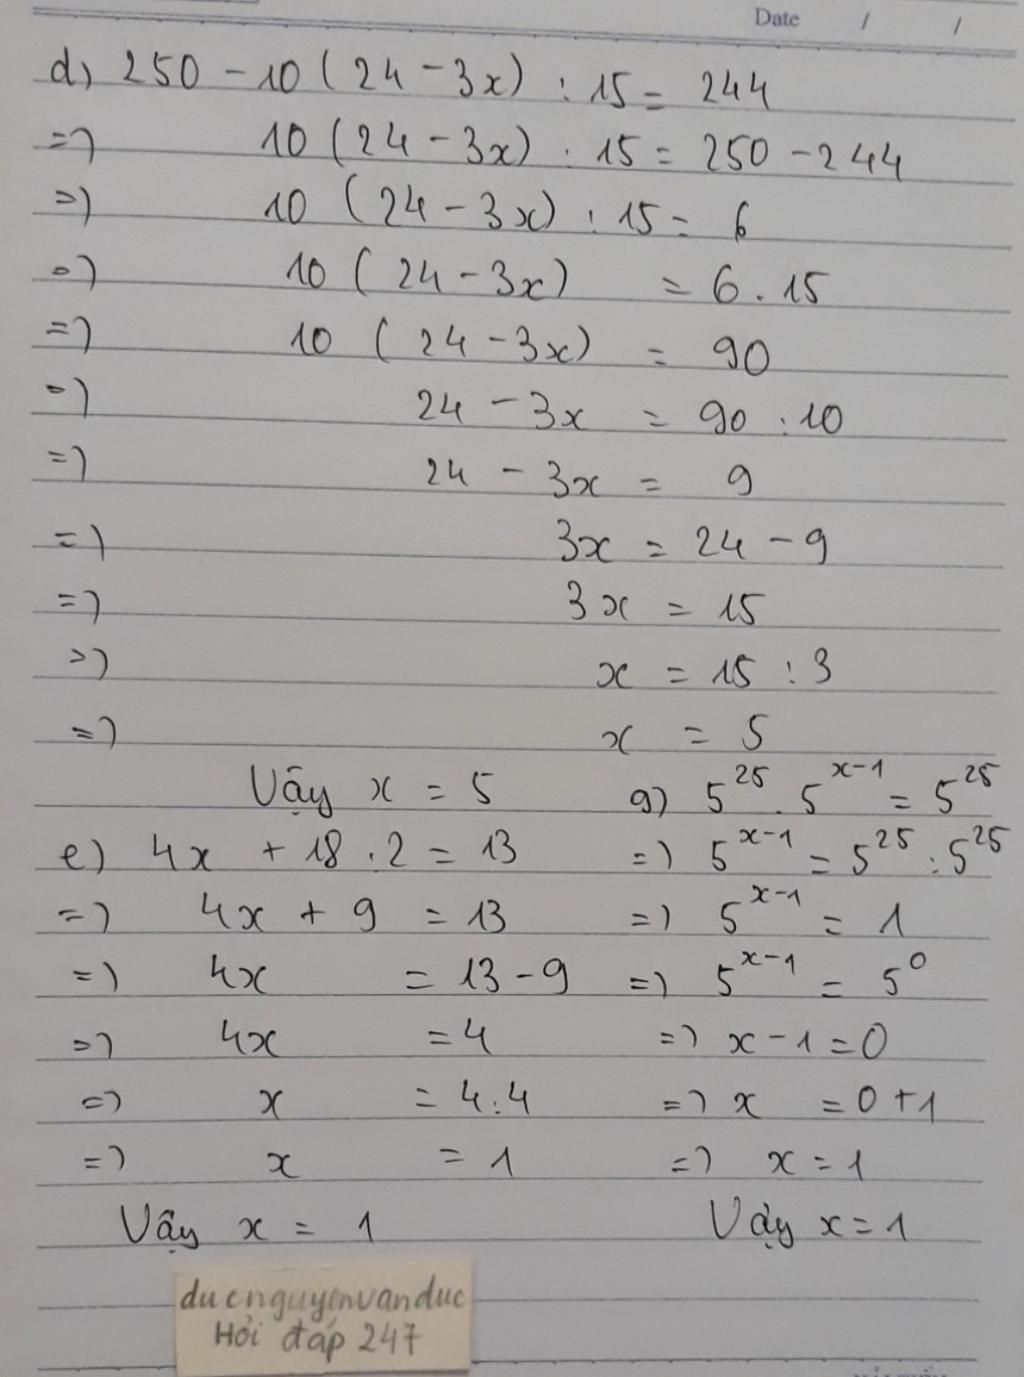 Date / /
d) 250 - 10 ( 24 - 3x ) : 15 = 244
=) 10 ( 24 - 3x ) : 15 = 250 - 244
=) 10 ( 24 - 3x ) : 15 = 6
=) 10 ( 24 - 3x ) = 6 . 15
=) 10 ( 24 - 3x ) = 90
=) 24 - 3x = 90 : 10
=) 24 - 3x = 9
=) 3x = 24 - 9
=) 3x = 15
=) x = 15 : 3
=) x = 5
Vậy x = 5
e) 4x + 18 : 2 = 13
=) 4x + 9 = 13
=) 4x = 13 - 9
=) 4x = 4
=) x = 4 : 4
=) x = 1
Vậy x = 1
g) 5^25 . 5^x-1 = 5^25
=) 5^x-1 = 5^25 : 5^25
=) 5^x-1 = 1
=) 5^x-1 = 5^0
=) x - 1 = 0
=) x = 0 + 1
=) x = 1
Vậy x = 1
ducnguyenvanduc
Hỏi đáp 247